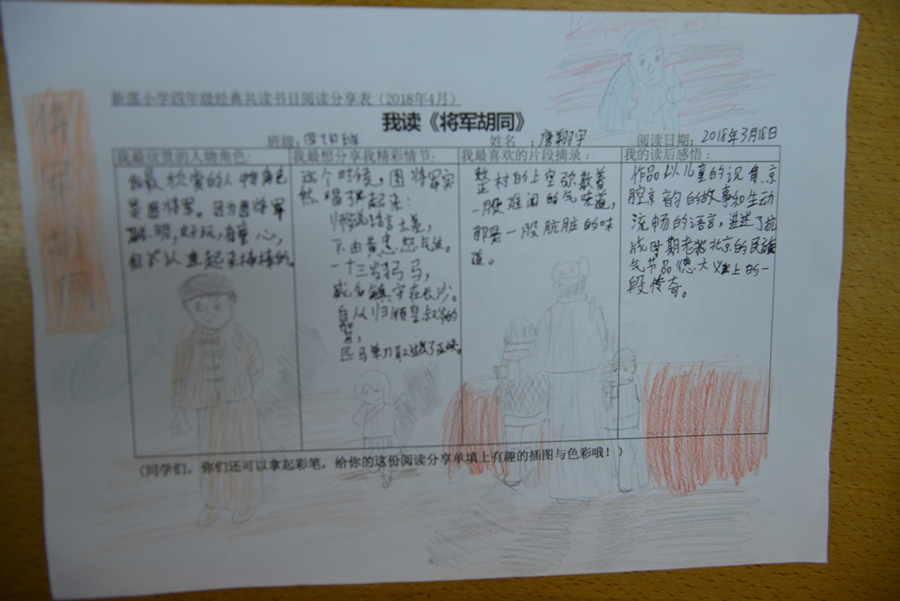 新莲小学四年级经典共读书目阅读分享表（2018年4月）
我读《将军胡同》
班级： 姓名：唐翔宇 阅读日期：2018年3月18日
将军胡同
我最欣赏的人物角色：
我最欣赏的人物角色
是图将军。因为图将军
聪明，好玩，有童心，
我最想分享我精彩情节：
这个时候，图将军突
然唱了起来：
不由黄忠怒气发。
一十三岁习弓马，
威名镇守在长沙。
自从归顺皇叔爷的
匹马单刀取过了巫峡。
我最喜欢的片段摘录：
整村的上空弥散着
一股难闻的气味道，
那是一股肮脏的味
道。
我的读后感悟：
作品以儿童的视角，京
腔京韵的故事和生动
流畅的语言，讲述了抗
战时期老北京的民族
气节品德大义上的一
段传奇。
（同学们，你们还可以拿起彩笔，给你的这份阅读分享单填上有趣的插图与色彩哦！）